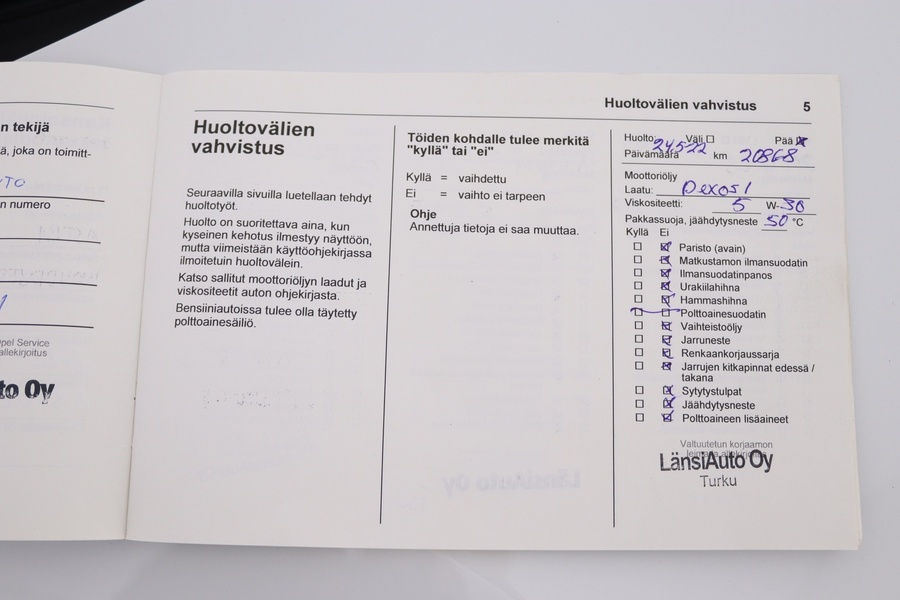 n tekijä
ä, joka on toimitt-
UTO
n numero
pel Service
allekirjoitus
to Oy
Huoltovälien vahvistus 5
Huoltovälien
vahvistus
Seuraavilla sivuilla luetellaan tehdyt
huoltotyöt.
Huolto on suoritettava aina, kun
kyseinen kehotus ilmestyy näyttöön,
mutta viimeistään käyttöohjekirjassa
ilmoitetuin huoltovälein.
Katso sallitut moottoriöljyn laadut ja
viskositeetit auton ohjekirjasta.
Bensiiniautoissa tulee olla täytetty
polttoainesäiliö.
Töiden kohdalle tulee merkitä
"kyllä" tai "ei"
Kyllä = vaihdettu
Ei = vaihto ei tarpeen
Ohje
Annettuja tietoja ei saa muuttaa.
Huolto: Väli ☐ Pää ☒
Päivämäärä 24.5-22 km 20868
Moottoriöljy
Laatu: Dexos 1
Viskositeetti: 5 W-30
Pakkassuoja, jäähdytysneste -50 °C
Kyllä Ei
☐ ☒ Paristo (avain)
☐ ☒ Matkustamon ilmansuodatin
☐ ☒ Ilmansuodatinpanos
☐ ☒ Urakiilahihna
☐ ☒ Hammashihna
☐ ☐ Polttoainesuodatin
☐ ☒ Vaihteistoöljy
☐ ☒ Jarruneste
☐ ☒ Renkaankorjaussarja
☐ ☒ Jarrujen kitkapinnat edessä /
takana
☐ ☒ Sytytystulpat
☐ ☒ Jäähdytysneste
☐ ☒ Polttoaineen lisäaineet
Valtuutetun korjaamon
leima ja allekirjoitus
LänsiAuto Oy
Turku